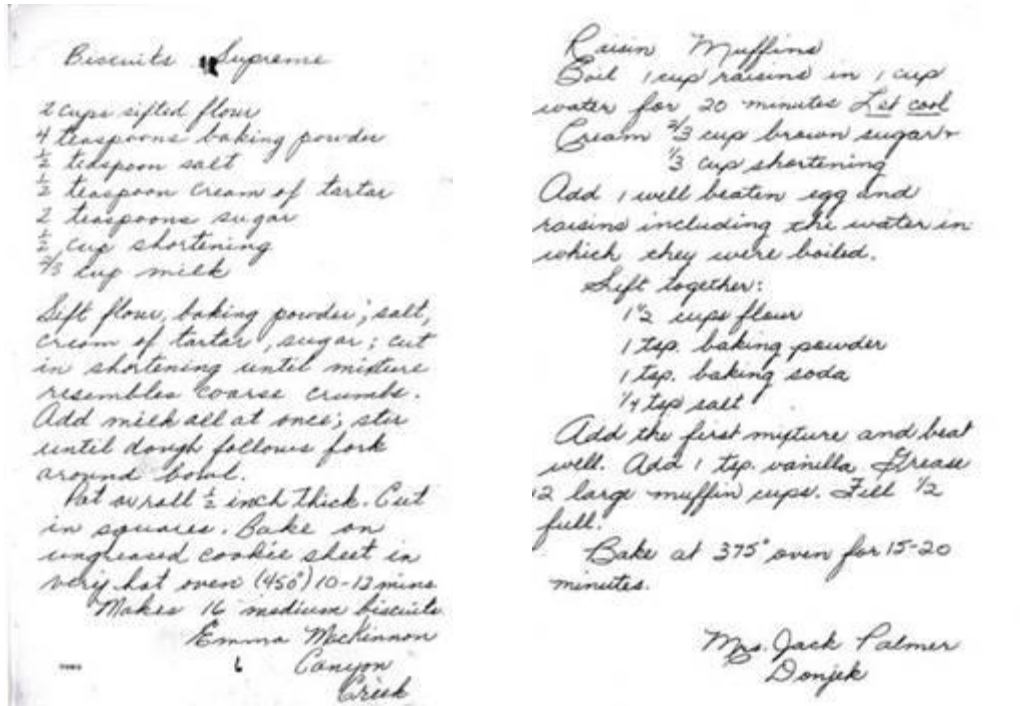 Biscuits Supreme
2 cups sifted flour
4 teaspoons baking powder
1/2 teaspoon salt
1/2 teaspoon cream of tartar
2 teaspoons sugar
1/2 cup shortening
2/3 cup milk
Sift flour, baking powder, salt,
cream of tartar, sugar; cut
in shortening until mixture
resembles coarse crumbs.
Add milk all at once; stir
until dough follows fork
around bowl.
Pat or roll 1/2 inch thick. Cut
in squares. Bake on
ungreased cookie sheet in
very hot oven (450°) 10-12 mins
Makes 16 medium biscuits
Emma MacKinnon
Canyon
Creek
Raisin Muffins
Boil 1 cup raisins in 1 cup
water for 20 minutes Let cool
Cream 2/3 cup brown sugar +
1/3 cup shortening
Add 1 well beaten egg and
raisins including the water in
which they were boiled.
Sift together:
1 1/2 cups flour
1 tsp. baking powder
1 tsp. baking soda
1/4 tsp salt
Add the first mixture and beat
well. Add 1 tsp. vanilla. Grease
12 large muffin cups. Fill 1/2
full.
Bake at 375° oven for 15-20
minutes.
Mrs. Jack Palmer
Donjek